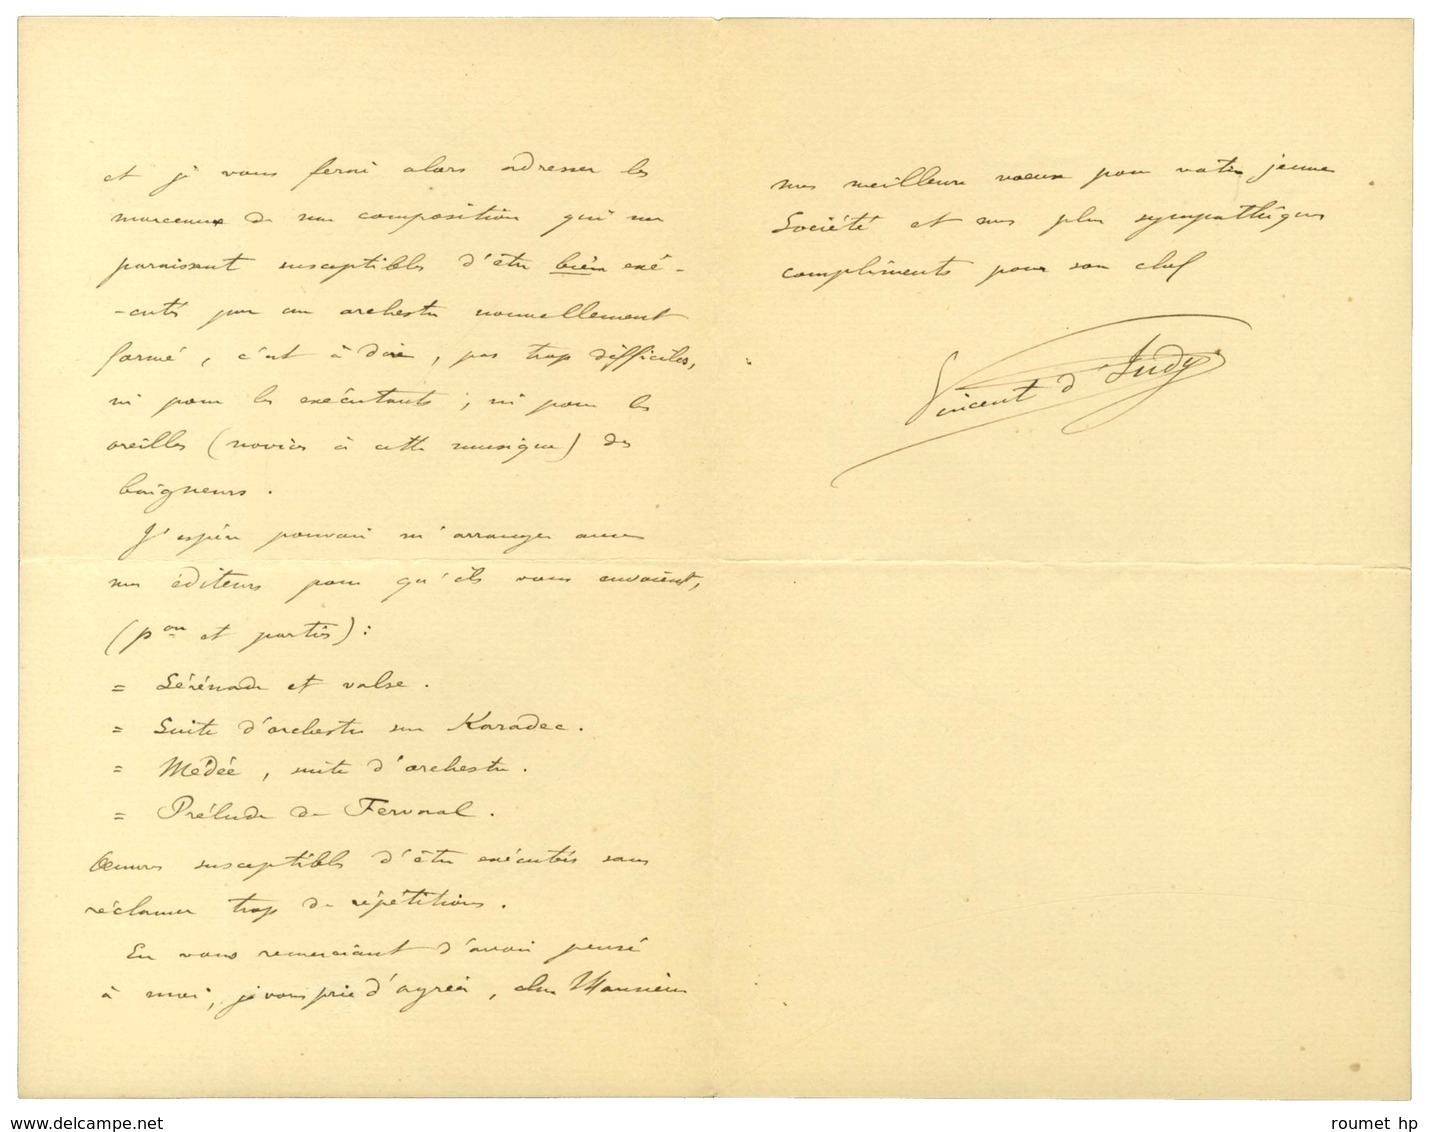 et je vous ferai alors adresser les
morceaux de ma composition qui me
paraissent susceptibles d'être bien exé-
-cutés par un orchestre nouvellement
formé, c'est à dire, pas trop difficiles,
ni pour les exécutants, ni pour les
oreilles (novices à cette musique) des
baigneurs.
J'espère pouvoir m'arranger avec
mes éditeurs pour qu'ils vous envoient,
(pon et parties):
= Sérénade et valse.
= Suite d'orchestre sur Karadec.
= Médée, suite d'orchestre.
= Prélude de Fervaal.
Œuvres susceptibles d'être exécutées sans
réclamer trop de répétitions.
En vous remerciant d'avoir pensé
à moi, je vous prie d'agréer, cher Monsieur
mes meilleurs voeux pour votre jeune
Société et mes plus sympathiques
compliments pour son chef
Vincent d'Indy
www.delcampe.net
roumet hp